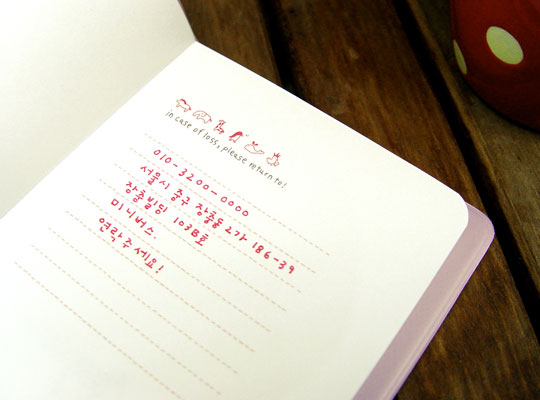 in case of loss, please return to!
010-3200-0000
서울시 중구 장충동 2가 186-39
장충빌딩 103B호
미니버스.
연락주세요!